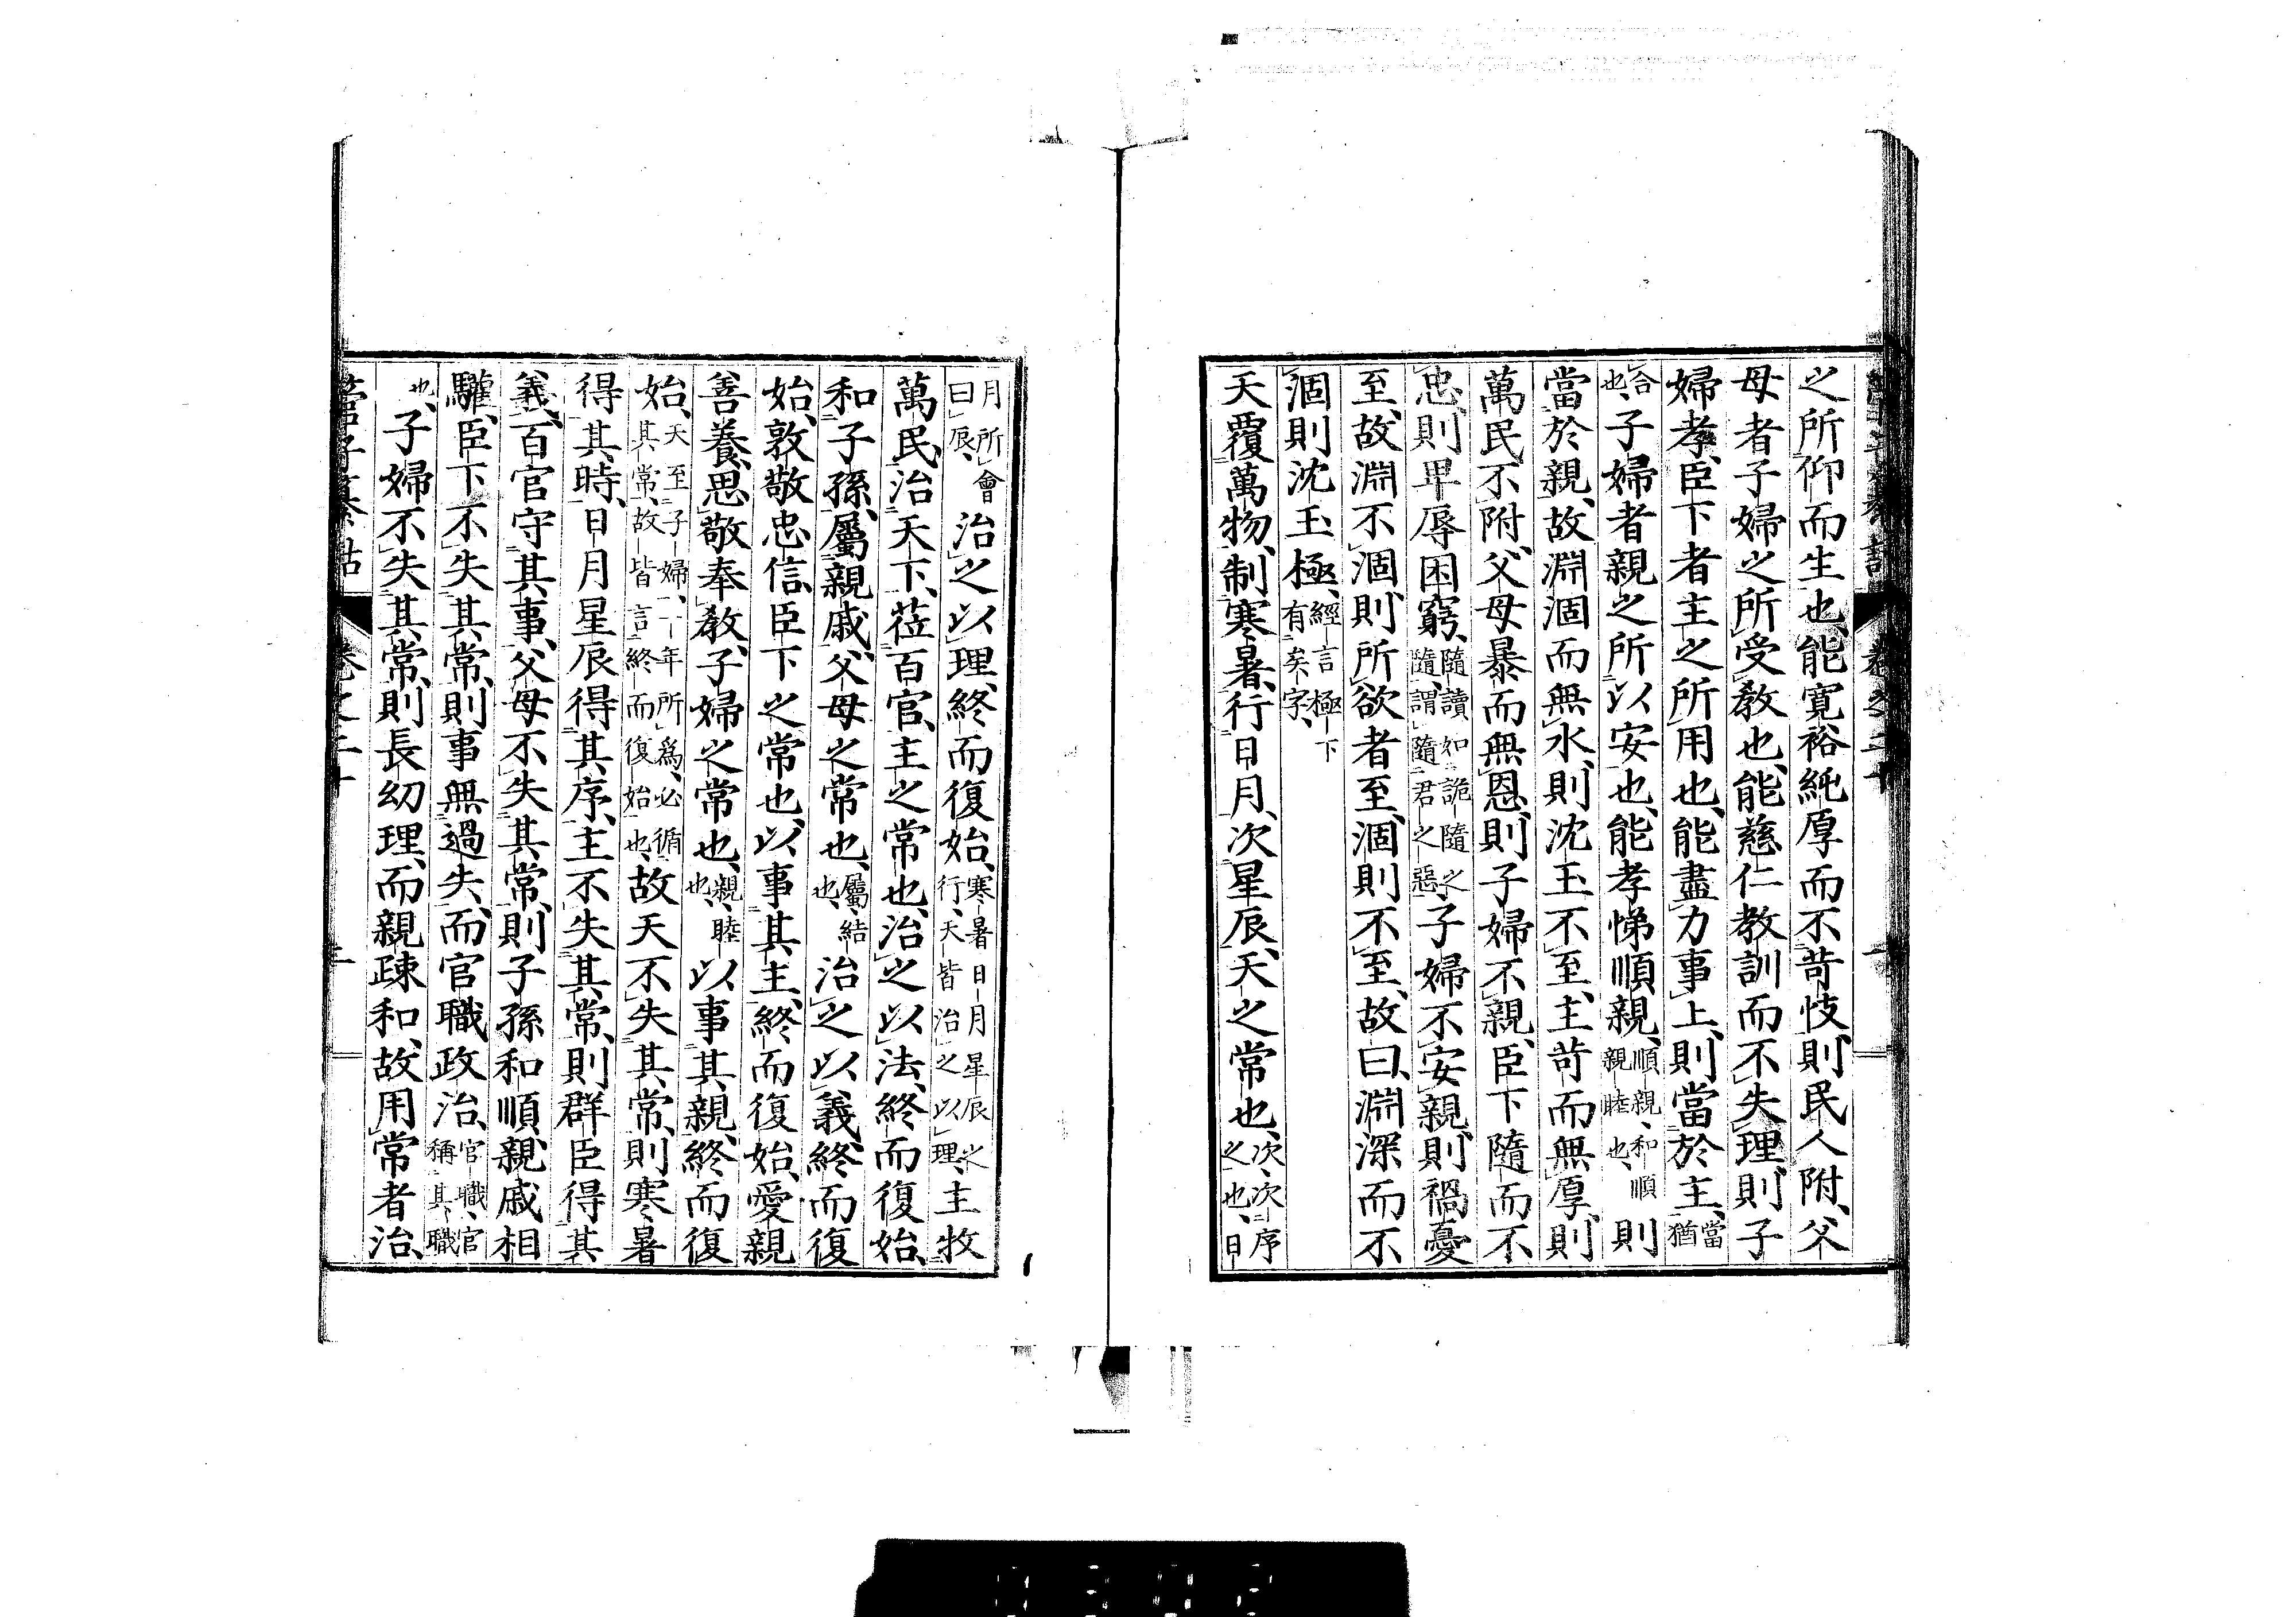 之所仰而生也、能寬裕純厚而不苛忮、則民人附、父
母者子婦之所受教也、能慈仁教訓而不失理、則子
婦孝、臣下者主之所用也、能盡力事上、則當於主、當猶
合也、子婦者親之所以安也、能孝悌順親、順親、和順親睦也、則
當於親、故淵涸而無水、則沈玉不至、主苛而無厚、則
萬民不附、父母暴而無恩、則子婦不親、臣下隨而不
忠、則卑辱困窮、隨讀如詭隨之隨、謂隨君之惡、子婦不安親、則禍憂
至、故淵不涸、則所欲者至、涸則不至、故曰、淵深而不
涸則沈玉極、經言極下有矣字、
天覆萬物、制寒暑、行日月、次星辰、天之常也、次、次序之也、日
月所會曰辰、治之以理、終而復始、寒暑日月星辰之行、天皆治之以理、主牧
萬民、治天下、莅百官、主之常也、治之以法、終而復始、
和子孫、屬親戚、父母之常也、屬、結也、治之以義、終而復
始、敦敬忠信、臣下之常也、以事其主、終而復始、愛親
善養、思敬奉教、子婦之常也、親、睦也、以事其親、終而復
始、天至子婦、一年所爲、必循其常、故皆言終而復始也、故天不失其常、則寒暑
得其時、日月星辰得其序、主不失其常、則群臣得其
義、百官守其事、父母不失其常、則子孫和順、親戚相
驩、臣下不失其常、則事無過失、而官職政治、官職、官稱其職
也、子婦不失其常、則長幼理、而親疎和、故用常者治、
管子纂詁 卷之二十 二